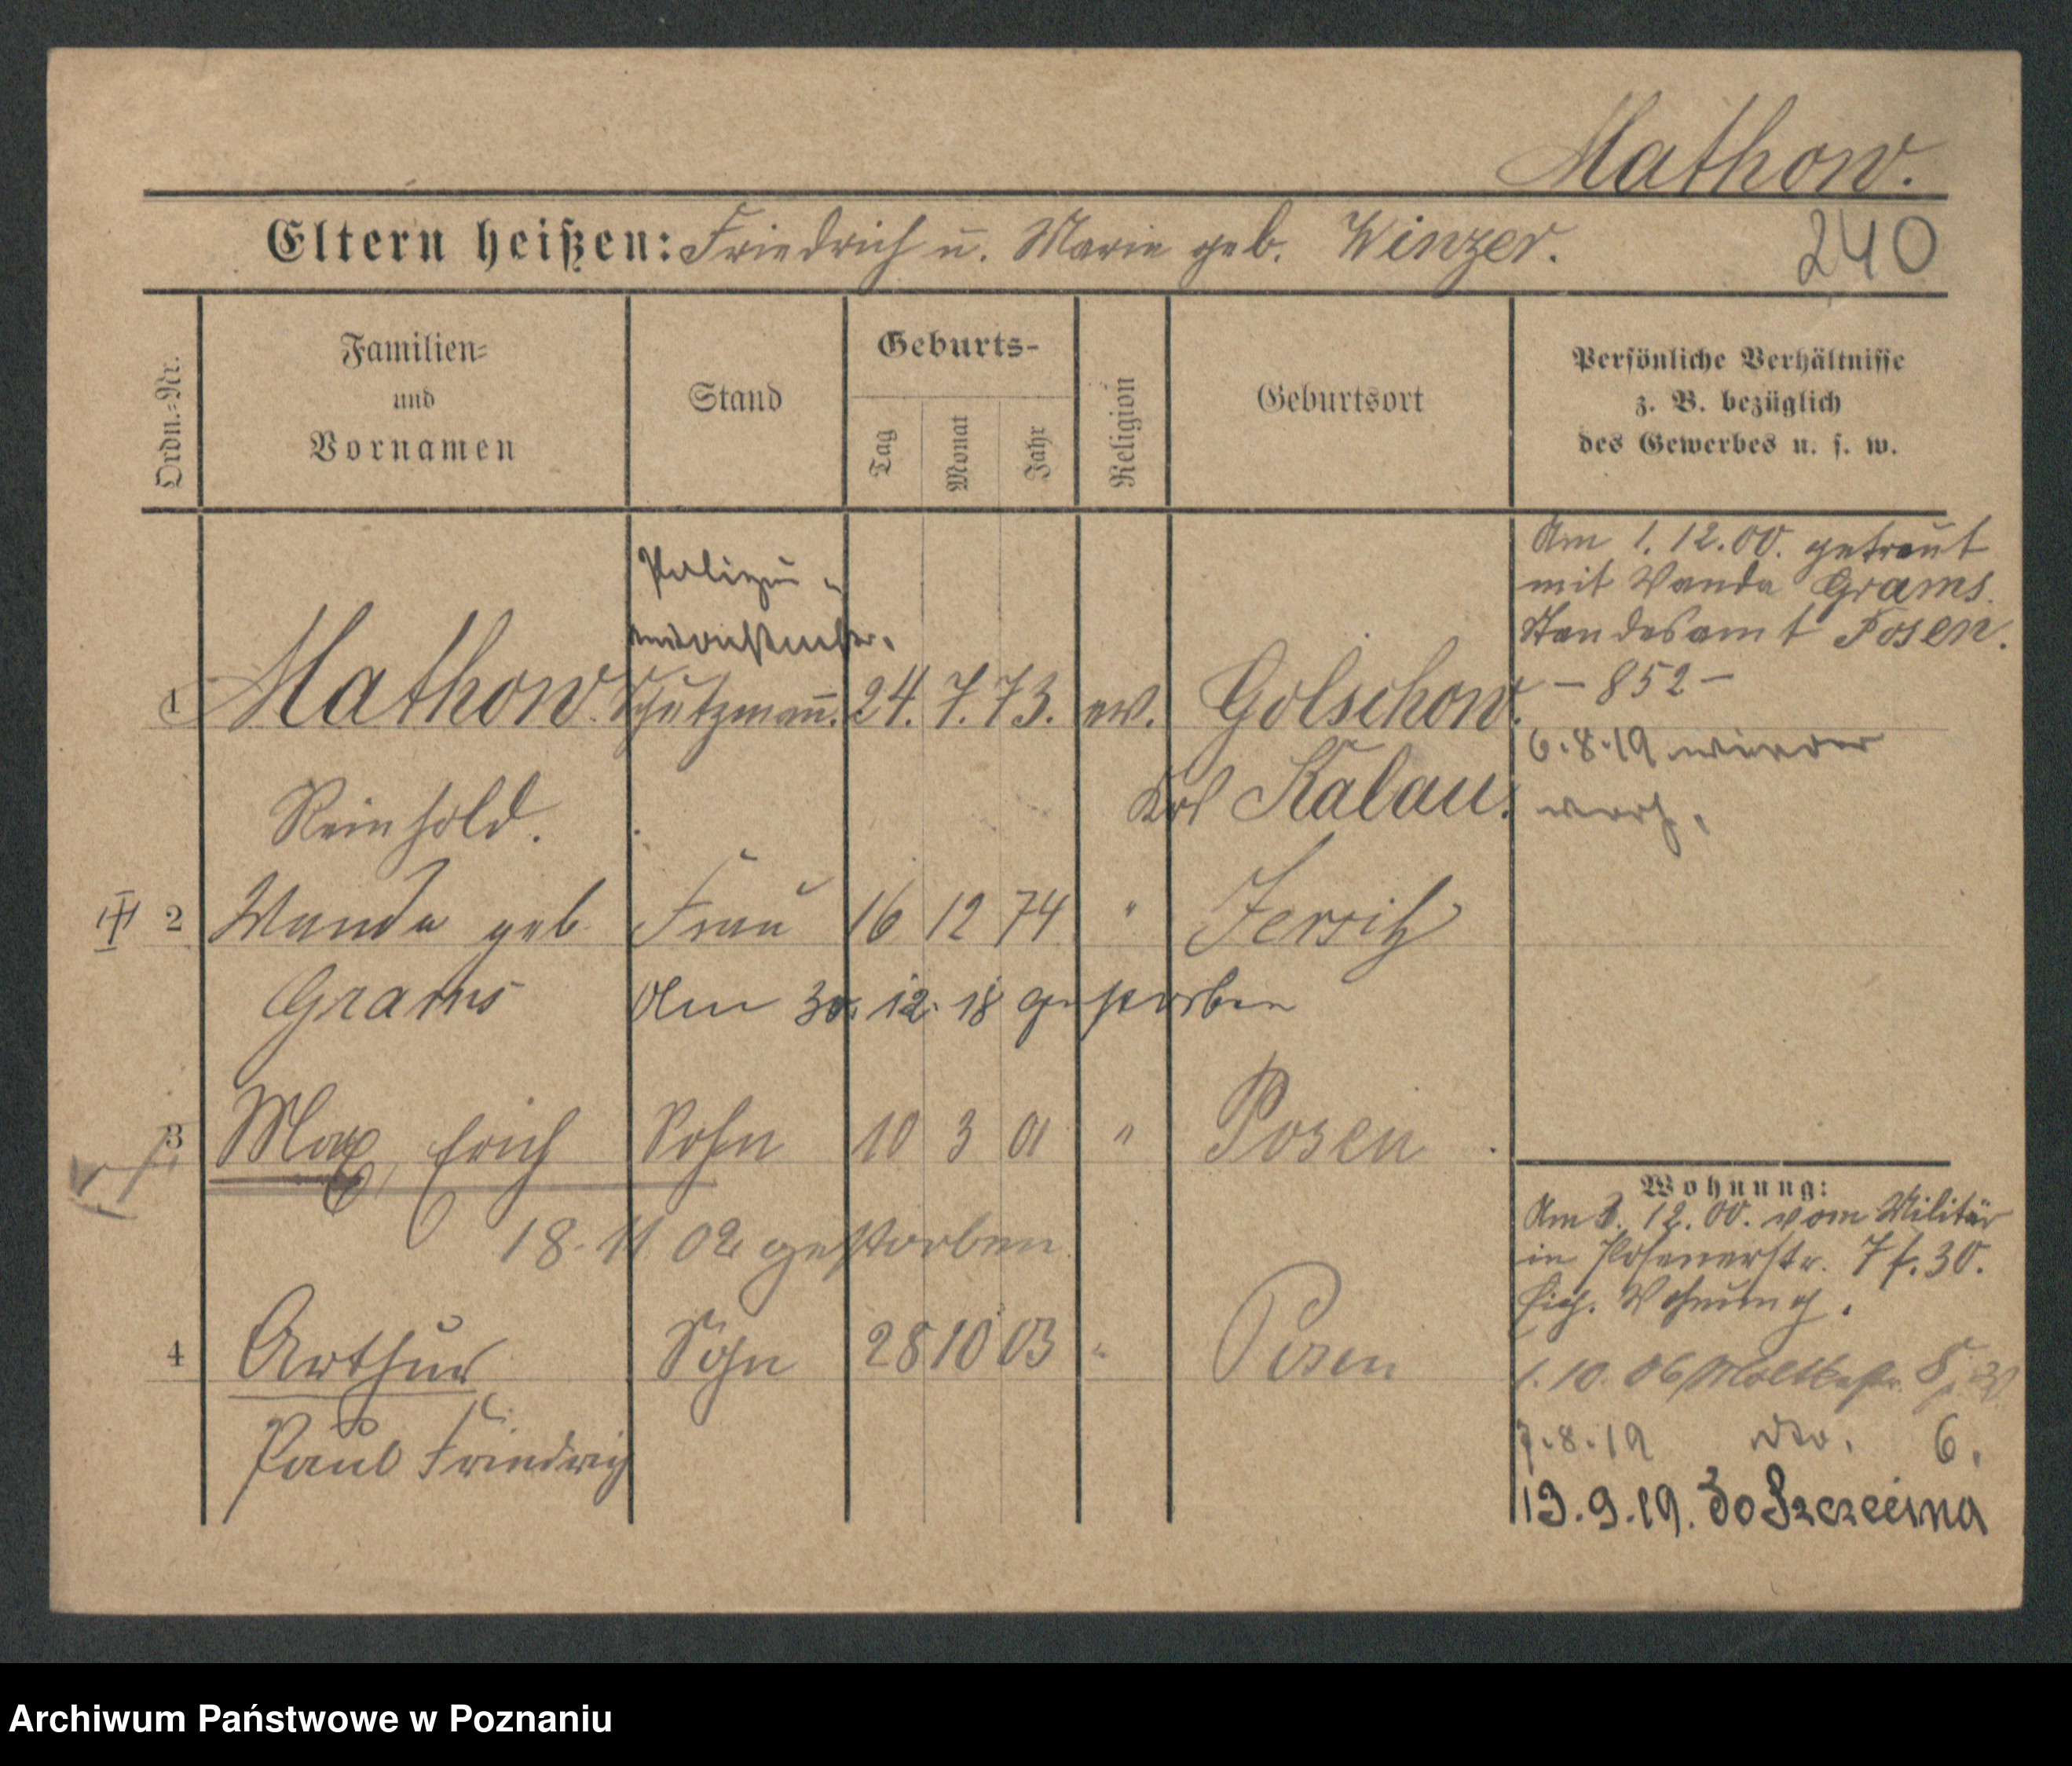 Mathow.
Eltern heißen: Friedrich u. Marie geb. Winzer.
240
Ordn.-Nr.
Familien-
und
Vornamen
Stand
Geburts-
Tag
Monat
Jahr
Religion
Geburtsort
Persönliche Verhältnisse
z. B. bezüglich
des Gewerbes u. s. w.
Am 1. 12. 00. getraut
mit Wanda Grams.
Standesamt Posen.
- 852 -
6.8.19 wieder
verh.
Polizei-
wachtmstr.
1 Mathow. Schutzmann. 24. 7. 73. ev. Golschow.
Reinhold. Krs Kalau.
2 Wanda geb. Frau 16 12 74 " Jersitz
Grams Am 30. 12. 18 gestorben
3 Max, Erich Sohn 10 3 01 " Posen
18. 11. 02 gestorben
4 Arthur Sohn 28 10 03 " Posen
Paul Friedrich
Wohnung:
Am 3. 12. 00. vom Militär
in Posenerstr. 7 f. 30.
Eig. Wohnung.
1. 10. 06 Moltkestr. 8,
7.8.19 do. 6.
13.9.19. do Szczecina
Archiwum Państwowe w Poznaniu